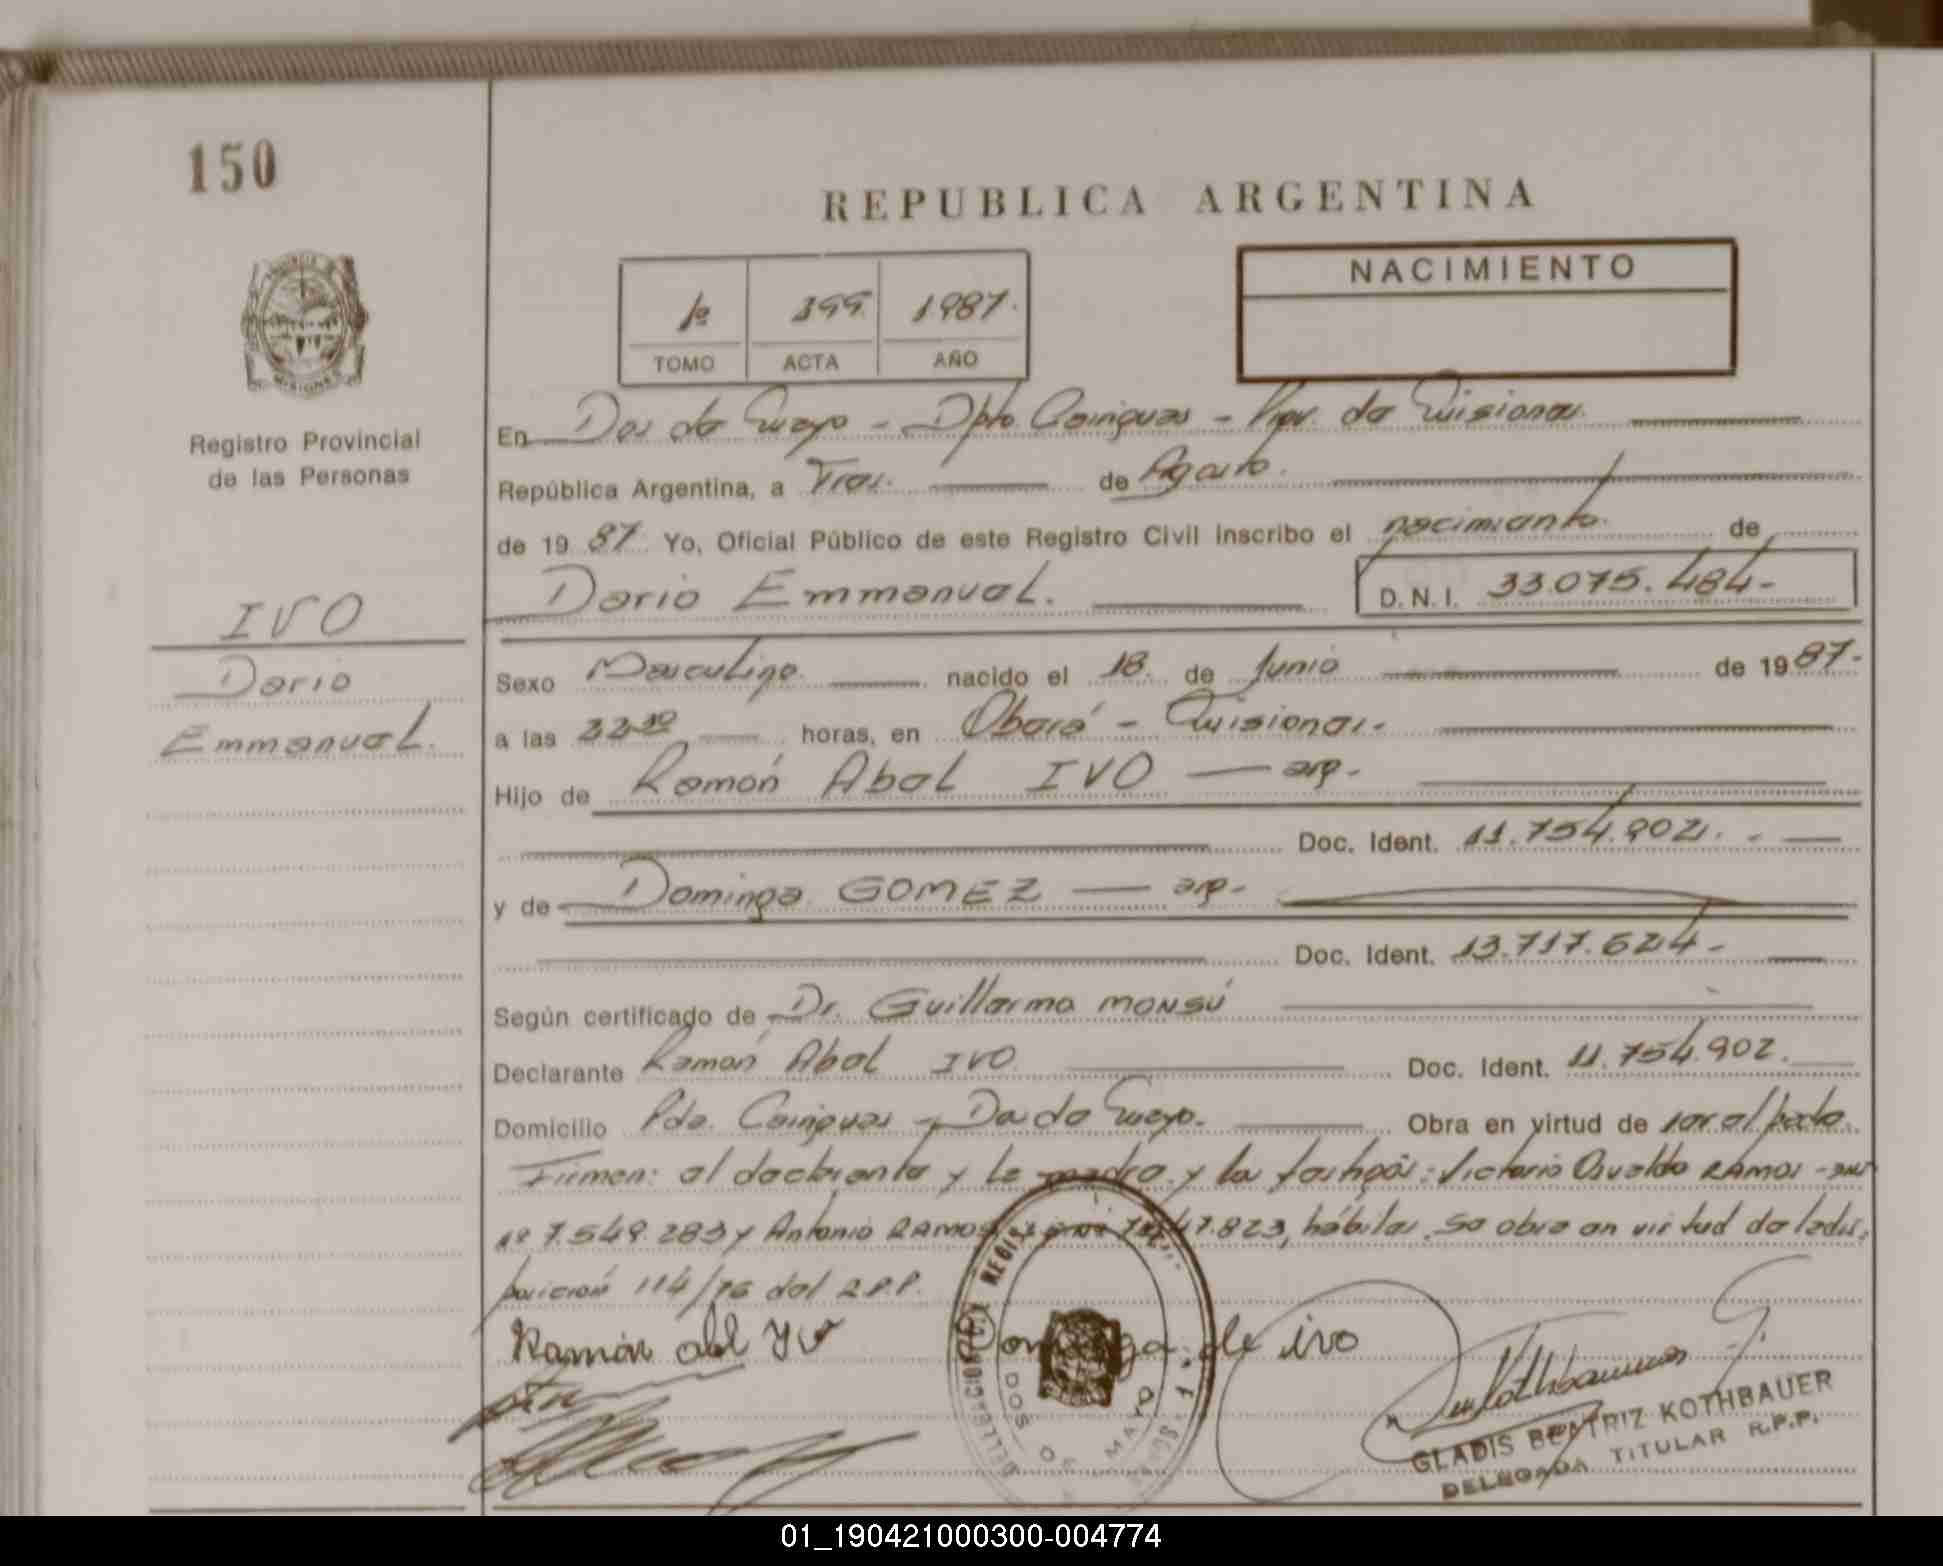 150
REPUBLICA ARGENTINA
NACIMIENTO
1º 199 1987.
TOMO ACTA AÑO
Registro Provincial
de las Personas
En Dos de Mayo - Dpto. Cainguas - Prov. de Misiones.
República Argentina, a Tres. de Agosto.
de 19 87 Yo, Oficial Público de este Registro Civil Inscribo el nacimiento. de
Dario Emmanuel. D.N.I. 33.075.484-
IVO
Dario
Emmanuel.
Sexo Masculino. nacido el 18. de Junio de 19 87-
a las horas, en Oberá - Misiones.-
Hijo de Ramón Abel IVO — arg.-
Doc. Ident. 11.754.902. -
y de Dominga GOMEZ — arg.-
Doc. Ident. 13.717.624-
Según certificado de Dr. Guillermo MONSÚ
Declarante Ramón Abel IVO Doc. Ident. 11.754.902.
Domicilio Pde. Cainguas - Dos de Mayo. Obra en virtud de ser el padre.
Firman: el declarante y la madre y los testigos: Victorio Osvaldo RAMOS - DNI
nº 7.549.283 y Antonio RAMOS 47.823, hábiles. Se obra en virtud de la dis-
posición 114/76 del R.P.P.
Ramón abel Dominga de ivo
DOS DE MAYO
GLADIS BEATRIZ KOTHBAUER
DELEGADA TITULAR R.P.P.
01_190421000300-004774